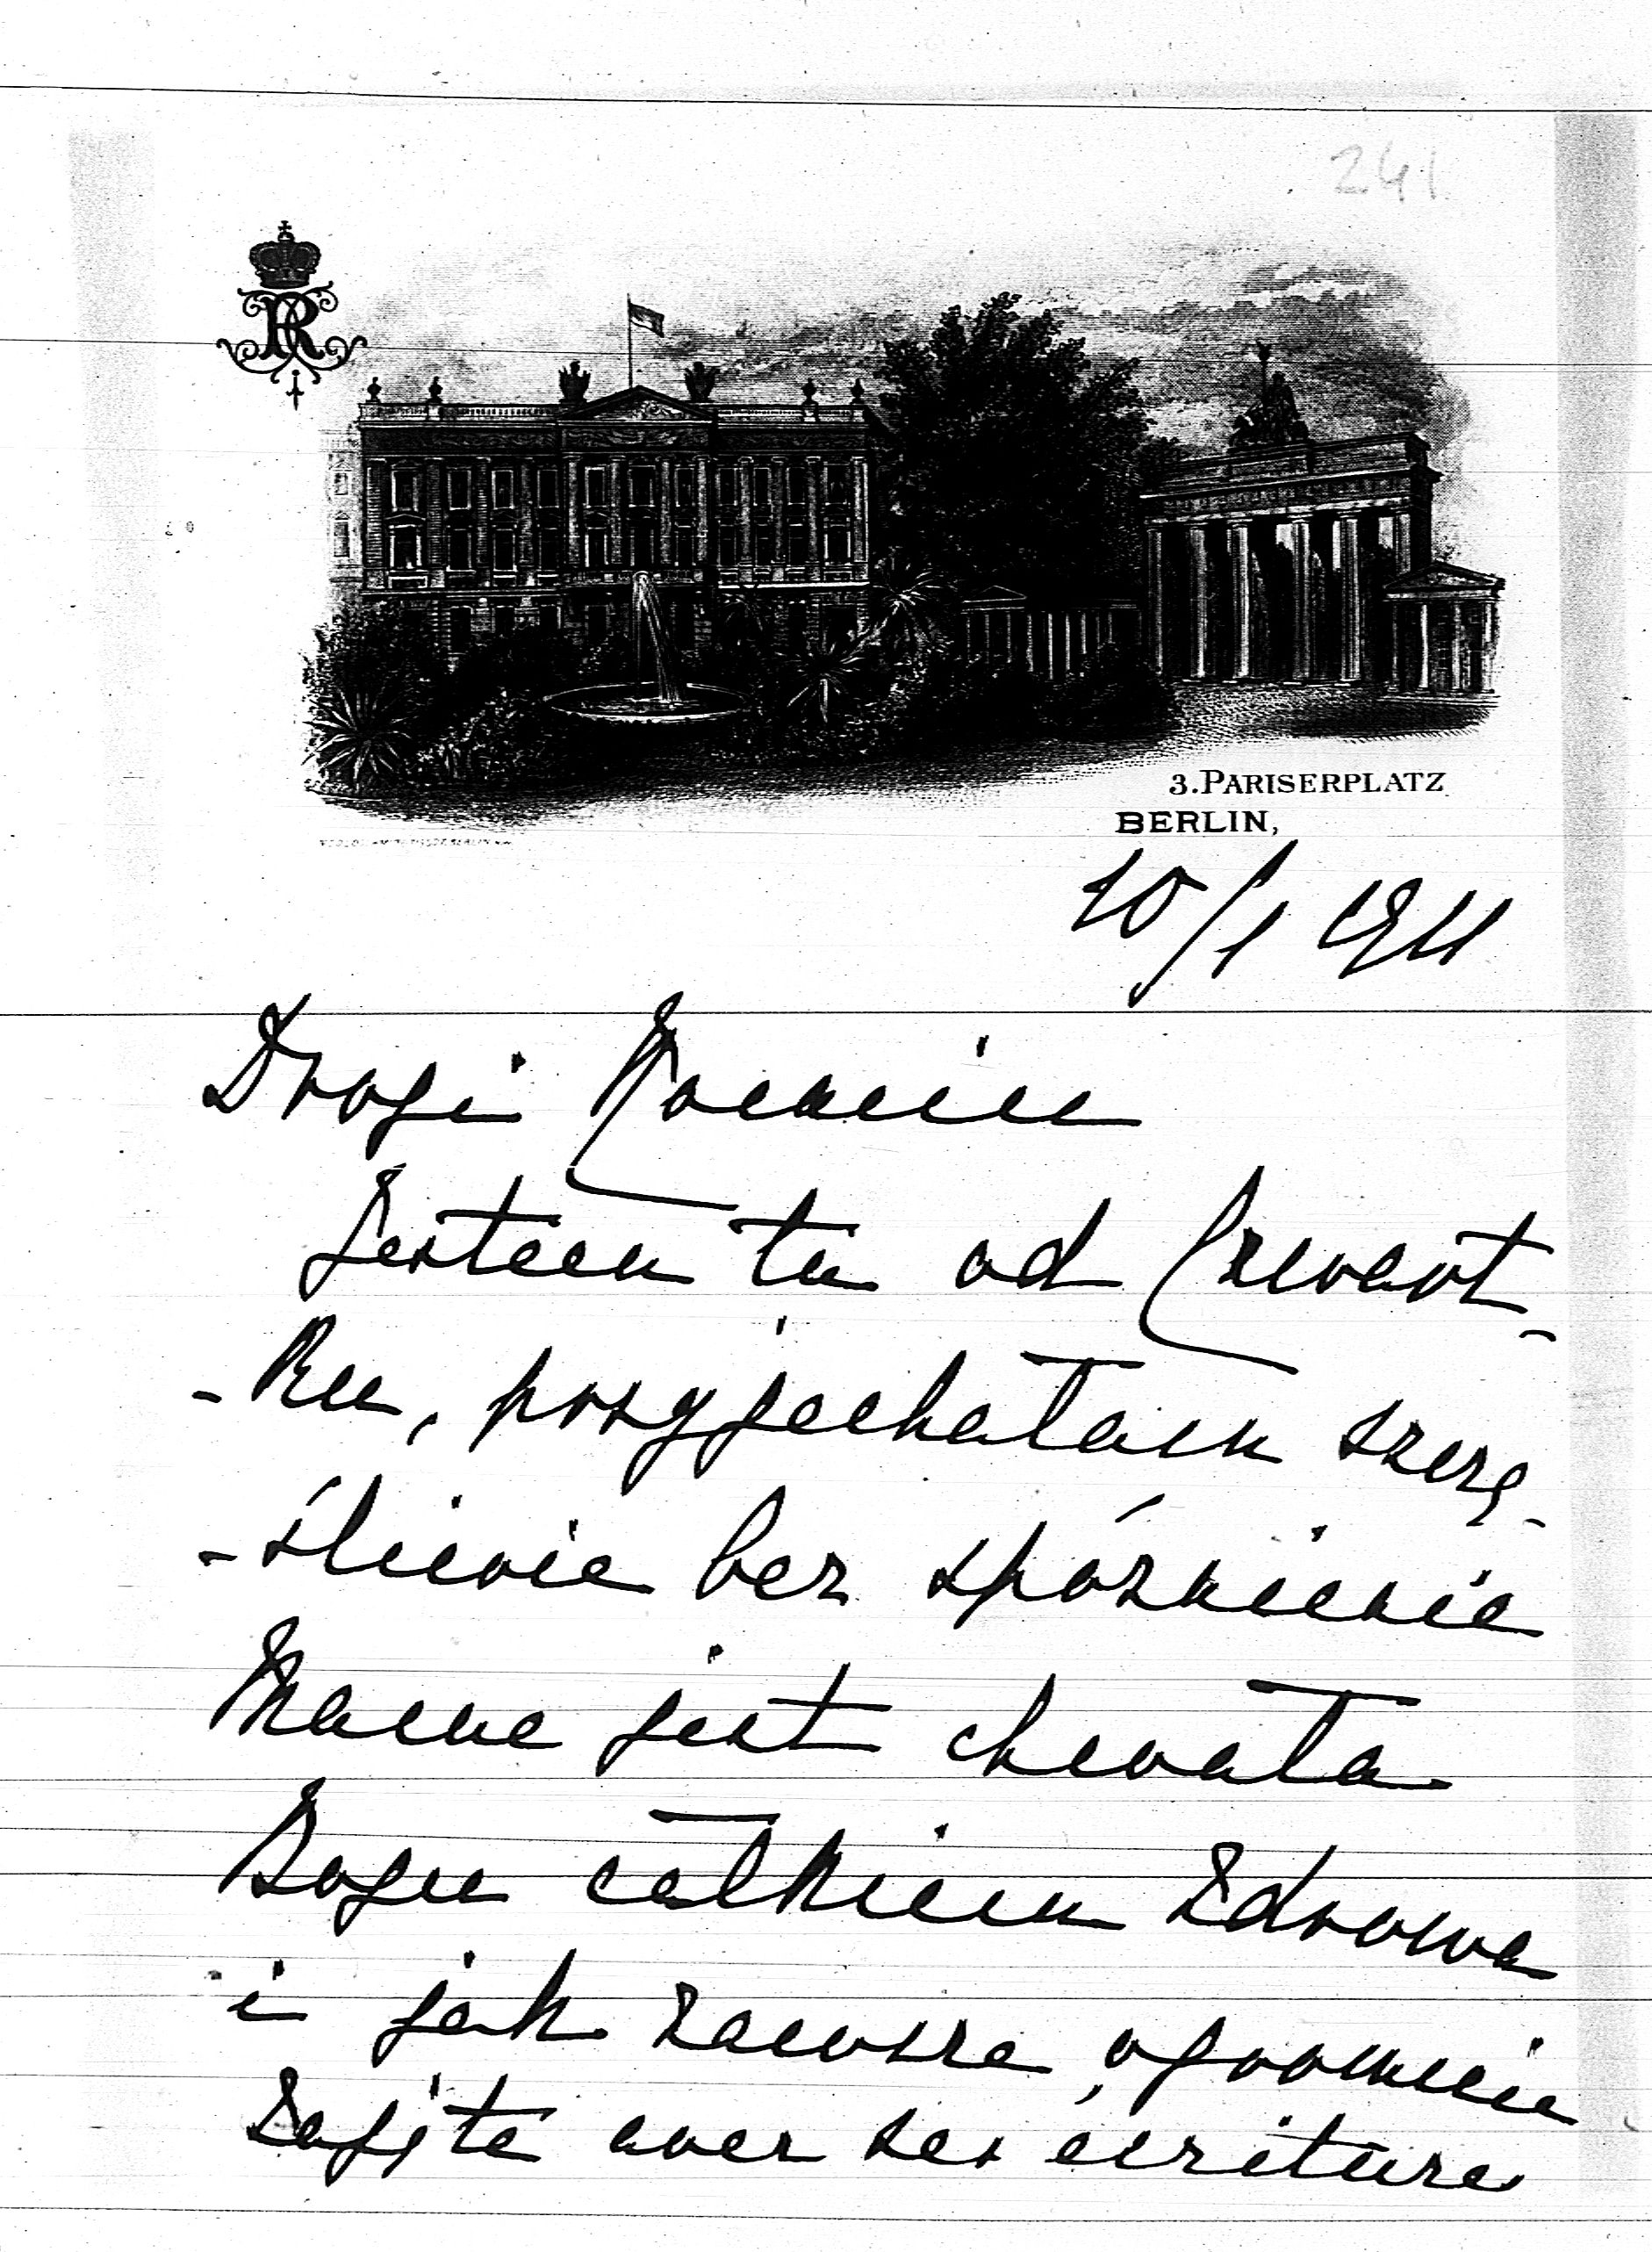 241
3. PARISERPLATZ
BERLIN,
10/1 1911
Drogi
Jestem tu od Czwart-
-ku, przyjechałam szczę-
-śliwie bez spóźnienia
Mama jest chwała
Bogu całkiem zdrowa
i jak zawsze, ogromnie
zajęta avec ses écritures